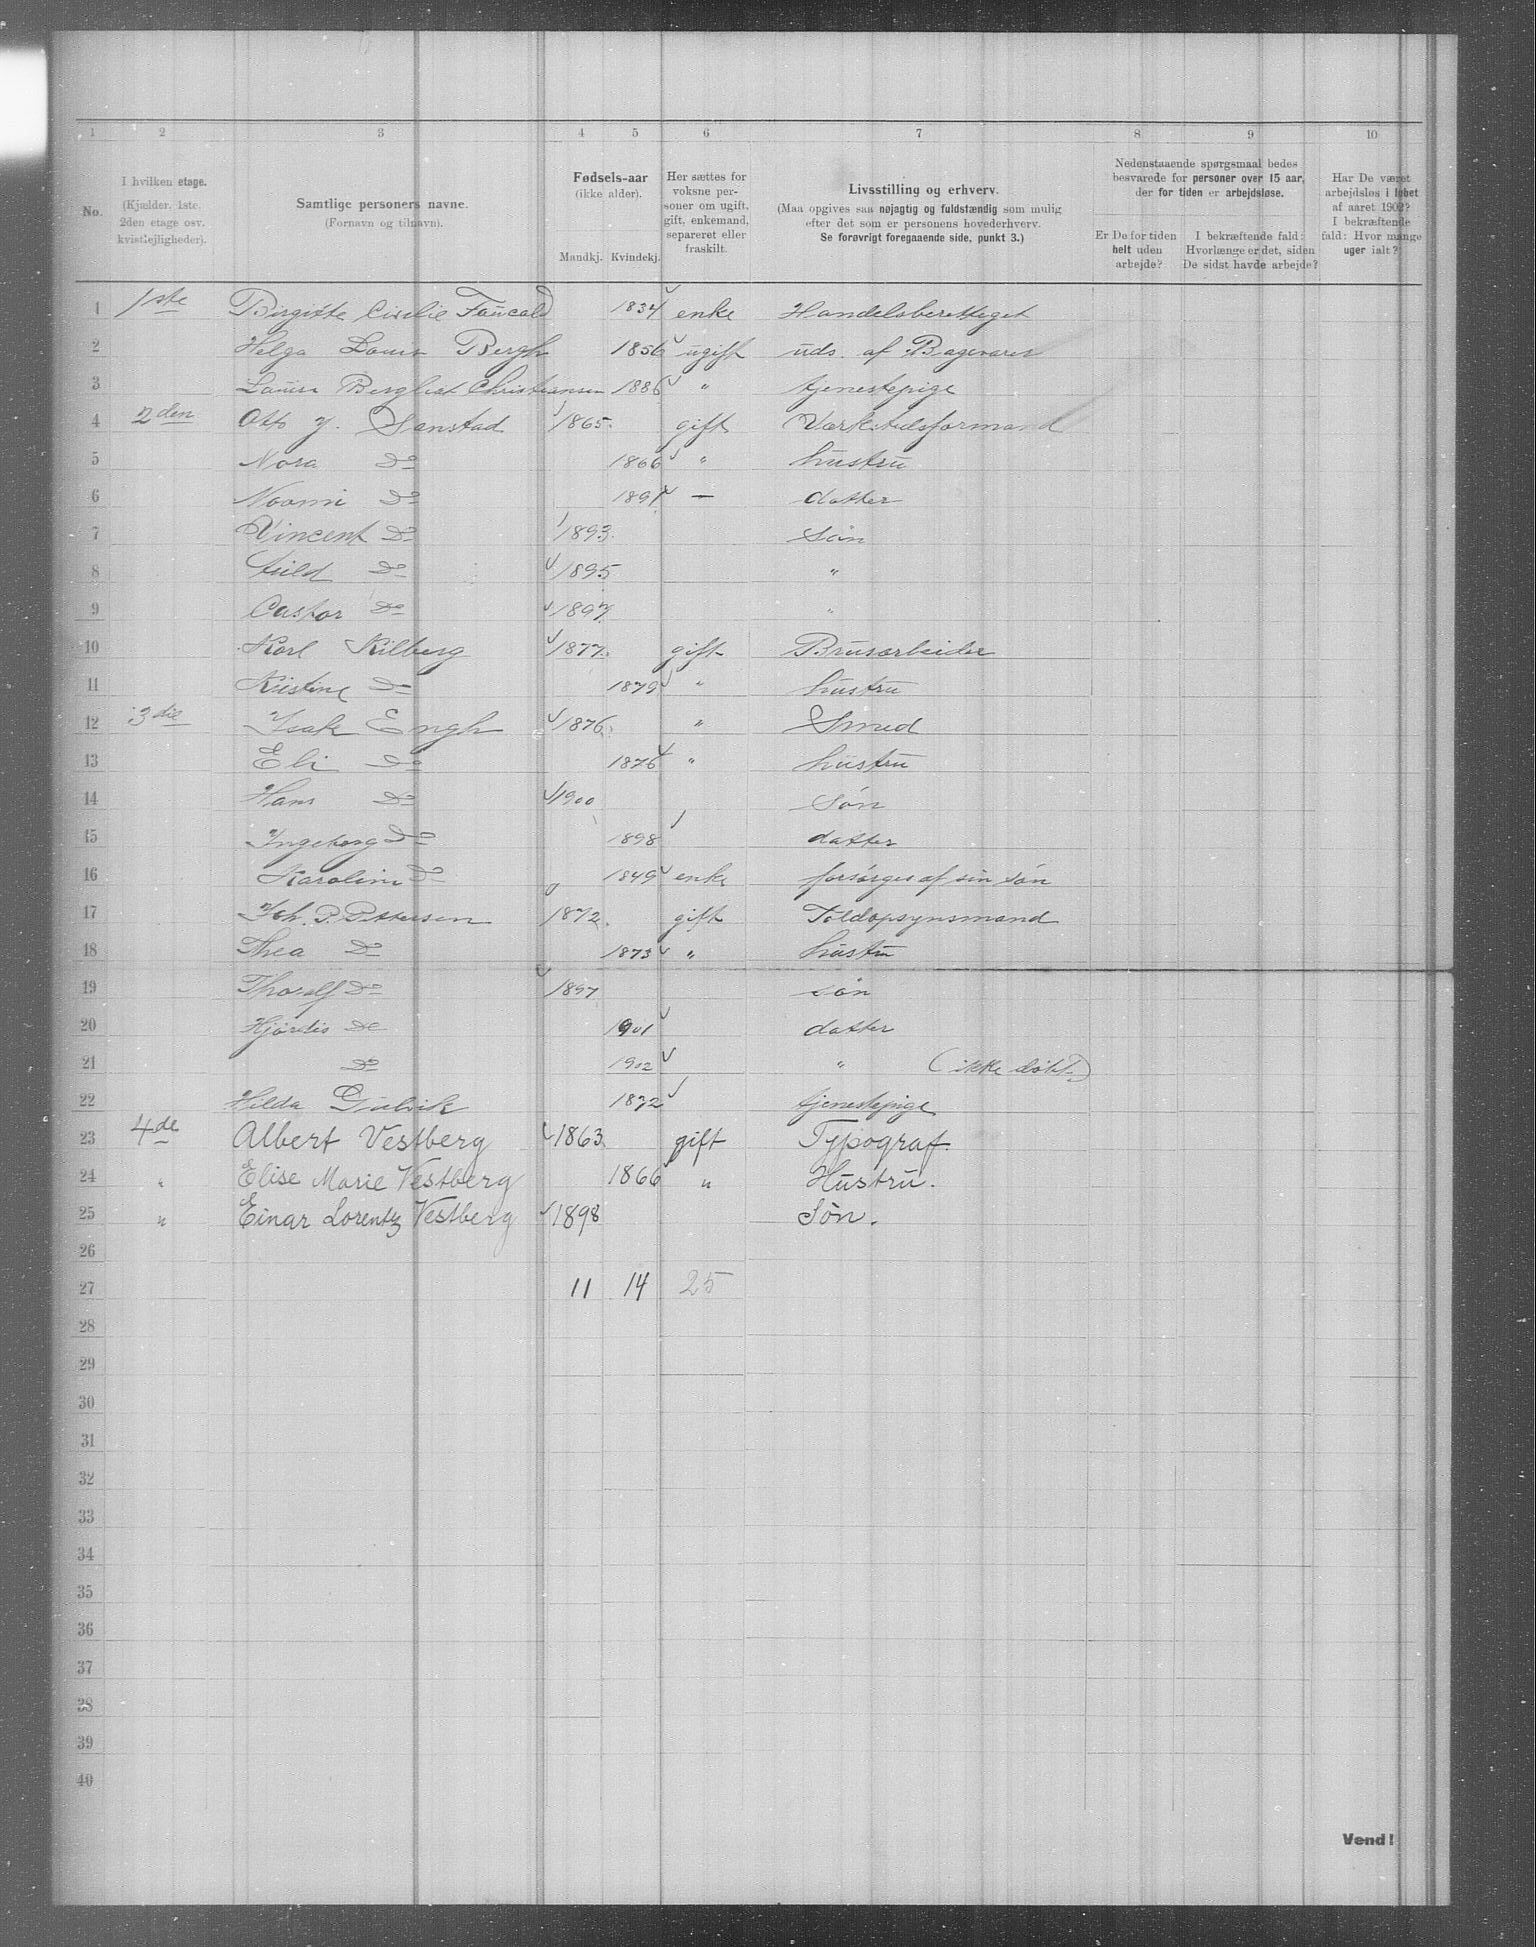 1 2 3 4 5 6 7 8 9 10
No.
I hvilken etage.
(Kjælder, 1ste,
2den etage osv.
kvistlejligheder).
Samtlige personers navne.
(Fornavn og tilnavn).
Fødsels-aar
(ikke alder).
Mandkj. Kvindekj.
Her sættes for
voksne per-
soner om ugift,
gift, enkemand,
separeret eller
fraskilt.
Livsstilling og erhverv.
(Maa opgives saa nøjagtig og fuldstændig som mulig
efter det som er personens hovederhverv.
Se forøvrigt foregaaende side, punkt 3.)
Nedenstaaende spørgsmaal bedes
besvarede for personer over 15 aar,
der for tiden er arbejdsløse.
Er De for tiden
helt uden
arbejde?
I bekræftende fald:
Hvorlænge er det, siden
De sidst havde arbejde?
Har De været
arbejdsløs i løbet
af aaret 1902?
I bekræftende
fald: Hvor mange
uger ialt?
1 1ste Birgitte 1834 enke Handelsberettiget
2 Helga Louis Bergh 1856 ugift uds. af Bagevarer
3 Louisa Bergliot Christiansen 1886 " tjenestepige
4 2den Otto J. Sanstad 1865 gift Værkstedsformand
5 Nora Do 1866 " hustru
6 Noomi Do 1891 — datter
7 Vincent Do 1893 Søn
8 Do 1895 "
9 Castor Do 1897 "
10 Karl Kilberg 1877 gift Brusarbeider
11 Kristine Do 1879 " hustru
12 3die Isak Engh 1876 " Smed
13 Eli Do 1876 " hustru
14 Hans Do 1900 Søn
15 Ingeborg Do 1898 datter
16 Karoline Do 1849 enke forsørges af sin søn
17 Joh. P. Pettersen 1872 gift Toldopsynsmand
18 Thea Do 1873 " hustru
19 Thoralf Do 1897 søn
20 Hjørdis Do 1901 datter
21 Do 1902 " (ikke døbt)
22 Hilda 1872 tjenestepige
23 4de Albert Vestberg 1863 gift Typograf.
24 " Elise Marie Vestberg 1866 " Hustru.
25 " Einar Lorentz Vestberg 1898 Søn.
26
27 11 14 25
28
29
30
31
32
33
34
35
36
37
38
39
40
Vend!